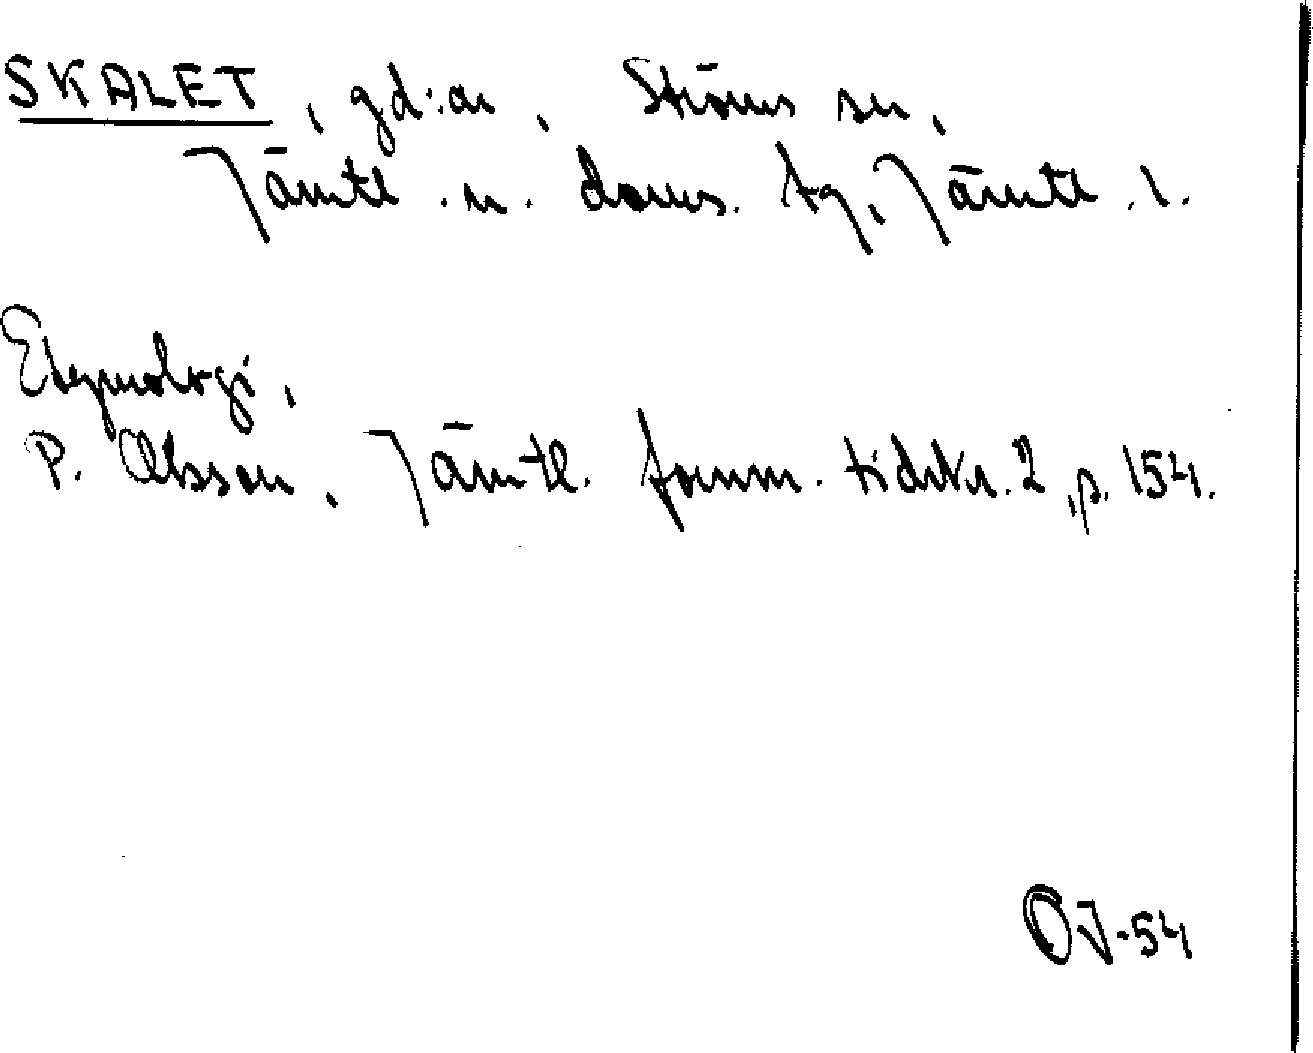 SKALET, gd:ar, Ströms sn,
Jämtl. n. doms. tg, Jämtl. l.
Etymologi,
P. Olsson, Jämtl. fornm. tidskr. 2, p. 154.
OJ-54